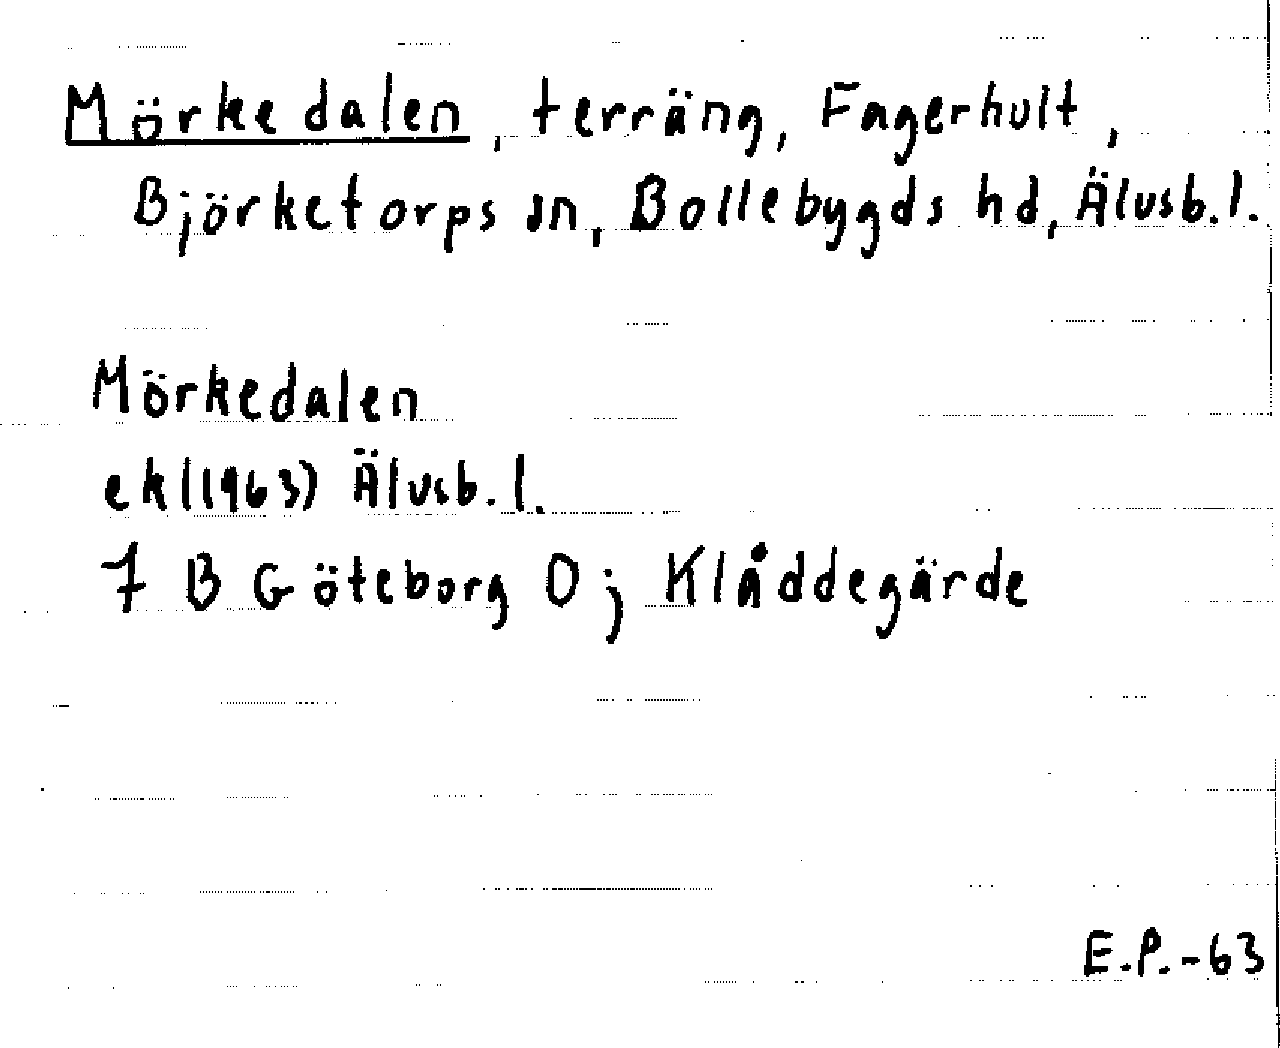 Mörkedalen, terräng, Fagerhult,
Björketorps sn, Bollebygds hd, Älvsb.l.
Mörkedalen
ek (1963) Älvsb.l.
7 B Göteborg 0 j Klåddegärde
E.P.-63